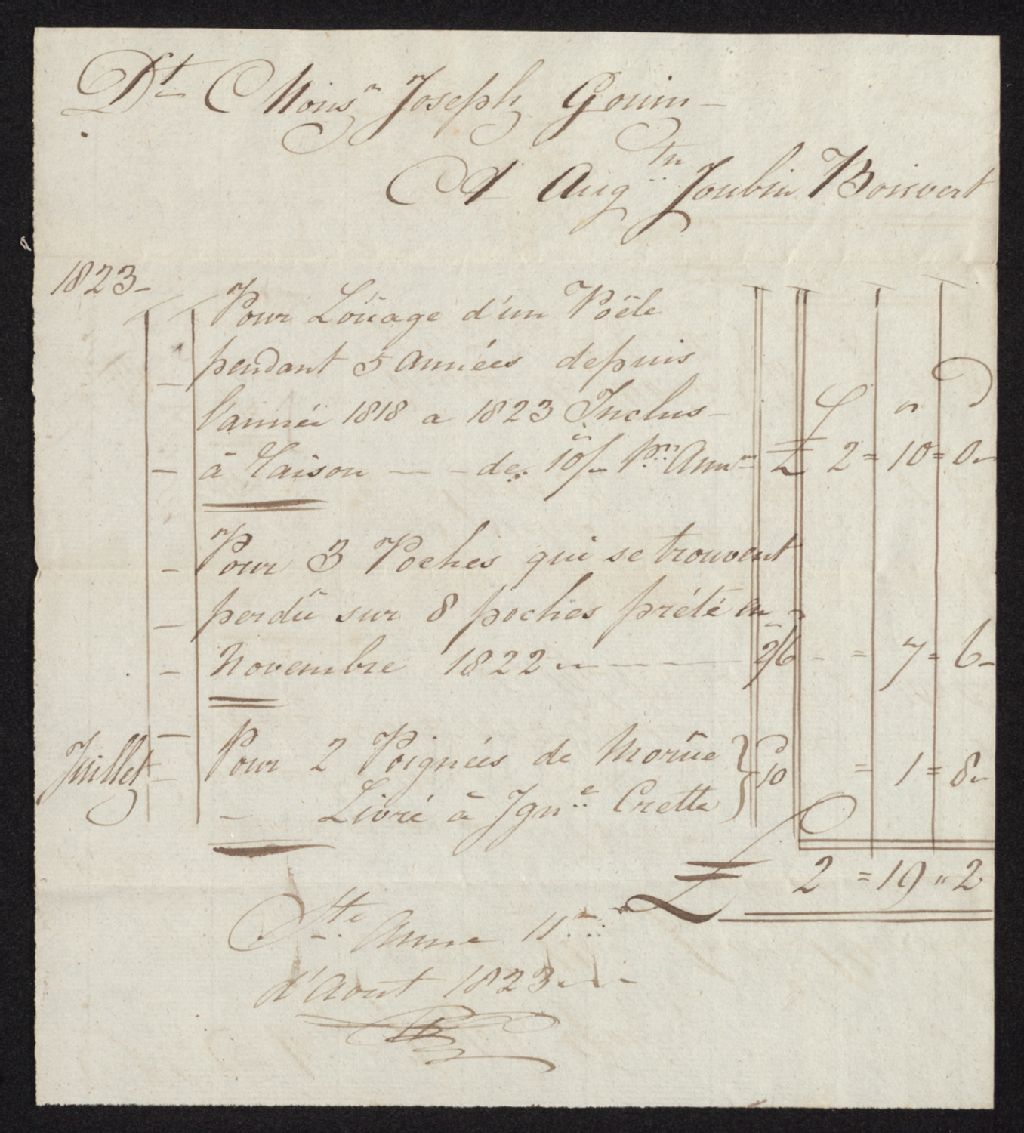 Dt Monsr Joseph Gouin
A Augtin Joubin Boisvert
1823
£ s D
Pour Loüage d'un Poële
pendant 5 années depuis
l'année 1818 a 1823 Inclus
à raison - - de 10/ Pr Ann £ 2 = 10 = 0
Pour 3 Poches qui se trouvent
perdû sur 8 poches prété en
Novembre 1822 - - - - 2/6 - = 7 = 6
Juillet Pour 2 Poignées de Morüe } 10 = 1 = 8
Livré à Igne Crette
£ 2 = 19 " 2
Ste Anne 11
d'Aout 1823